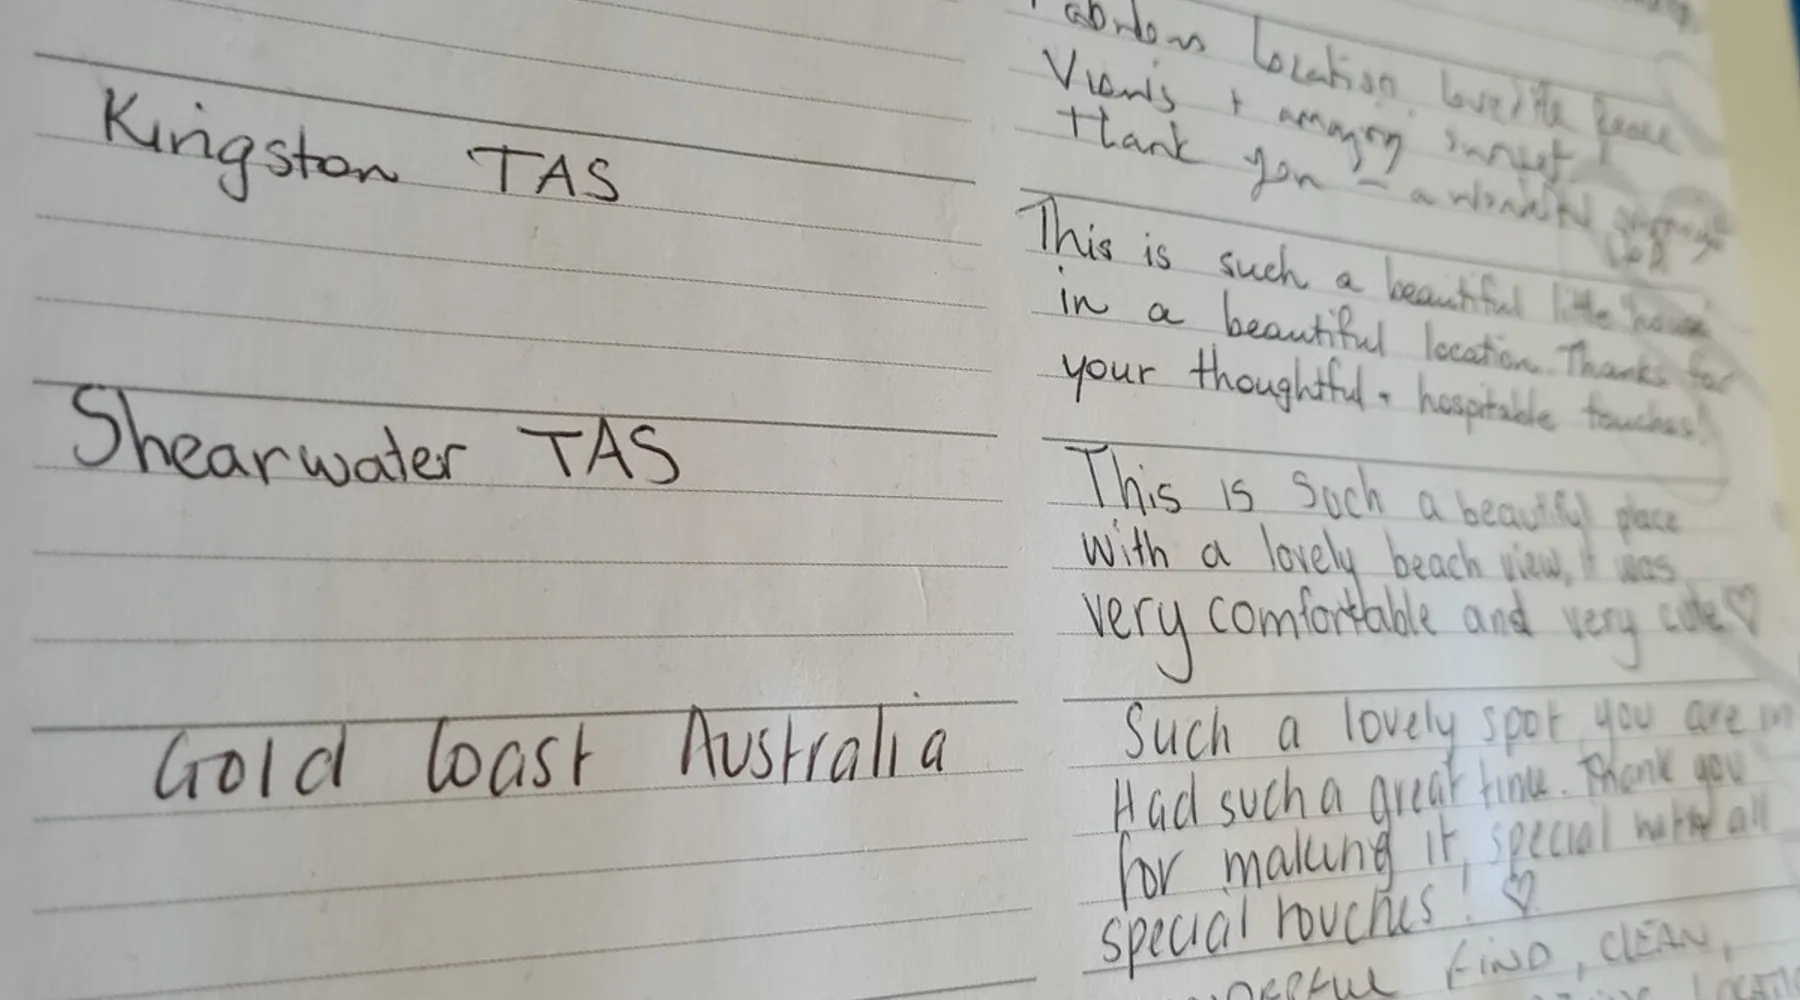 Location, love the peace
Views + amazing sunset.
Thank you - a wonderful
Kingston TAS
This is such a beautiful little house
in a beautiful location. Thanks for
your thoughtful + hospitable touches!
Shearwater TAS
This is such a beautiful place
with a lovely beach view, it was
very comfortable and very cute ♡
Gold Coast Australia
Such a lovely spot you are in
Had such a great time. Thank you
for making it, special with all
special touches! ♡
FIND, CLEAN,